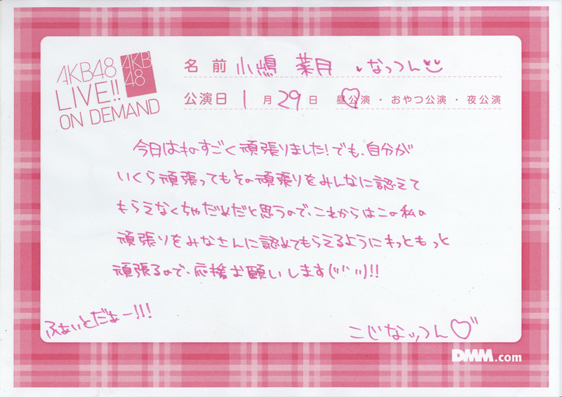 AKB48
LIVE!!
ON DEMAND
AKB
48
名前 小嶋 菜月 なっつん
公演日 1月29日 昼公演・おやつ公演・夜公演
今日はねすごく頑張りました!でも、自分が
いくら頑張ってもその頑張りをみんなに認えて
もらえなくちゃだめだと思うので、これからはこの私の
頑張りをみなさんに認めてもらえるようにもっともっと
頑張るので、応援お願いします(''' '')!!
ふぁいとだぁー!!!
こじなっつん♡
DMM.com